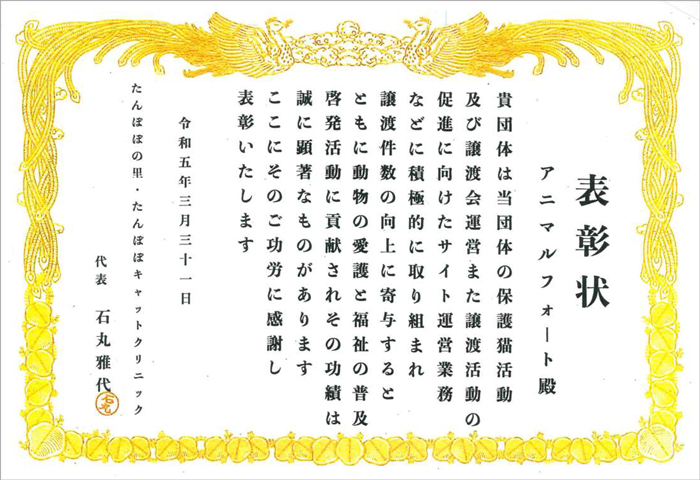 表彰状
アニマルフォート殿
貴団体は当団体の保護猫活動
及び譲渡会運営また譲渡活動の
促進に向けたサイト運営業務
などに積極的に取り組まれ
譲渡件数の向上に寄与すると
ともに動物の愛護と福祉の普及
啓発活動に貢献されその功績は
誠に顕著なものがあります
ここにそのご功労に感謝し
表彰いたします
令和五年三月三十一日
たんぽぽの里・たんぽぽキャットクリニック
代表 石丸雅代